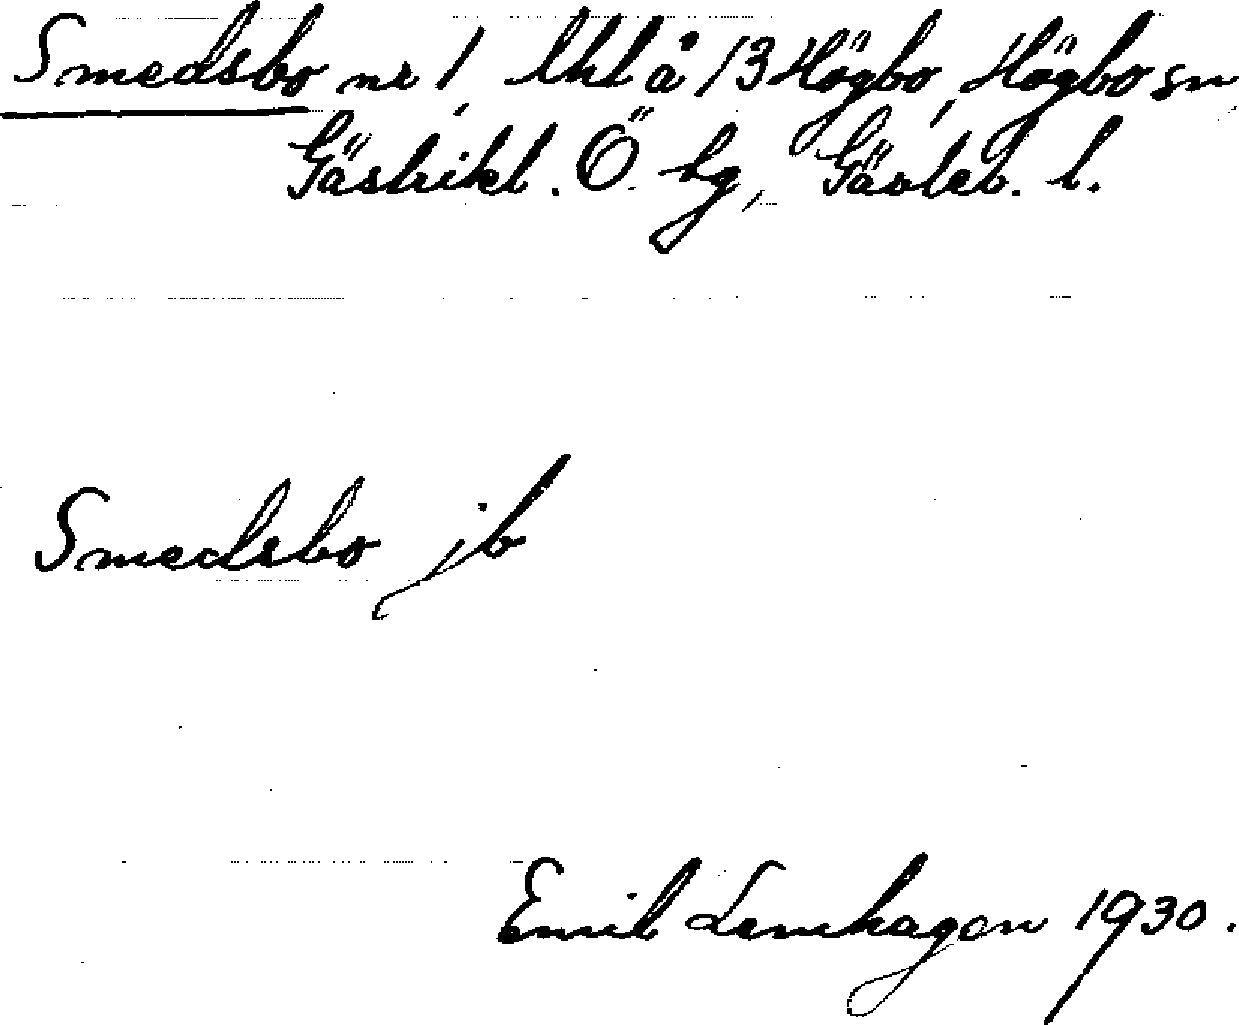 Smedsbo nr 1, Uhl å 13 Högbo, Högbo sn
Gästrikl. Ö. hg, Gävleb. l.
Smedsbo jb
Emil Lemhagen 1930.